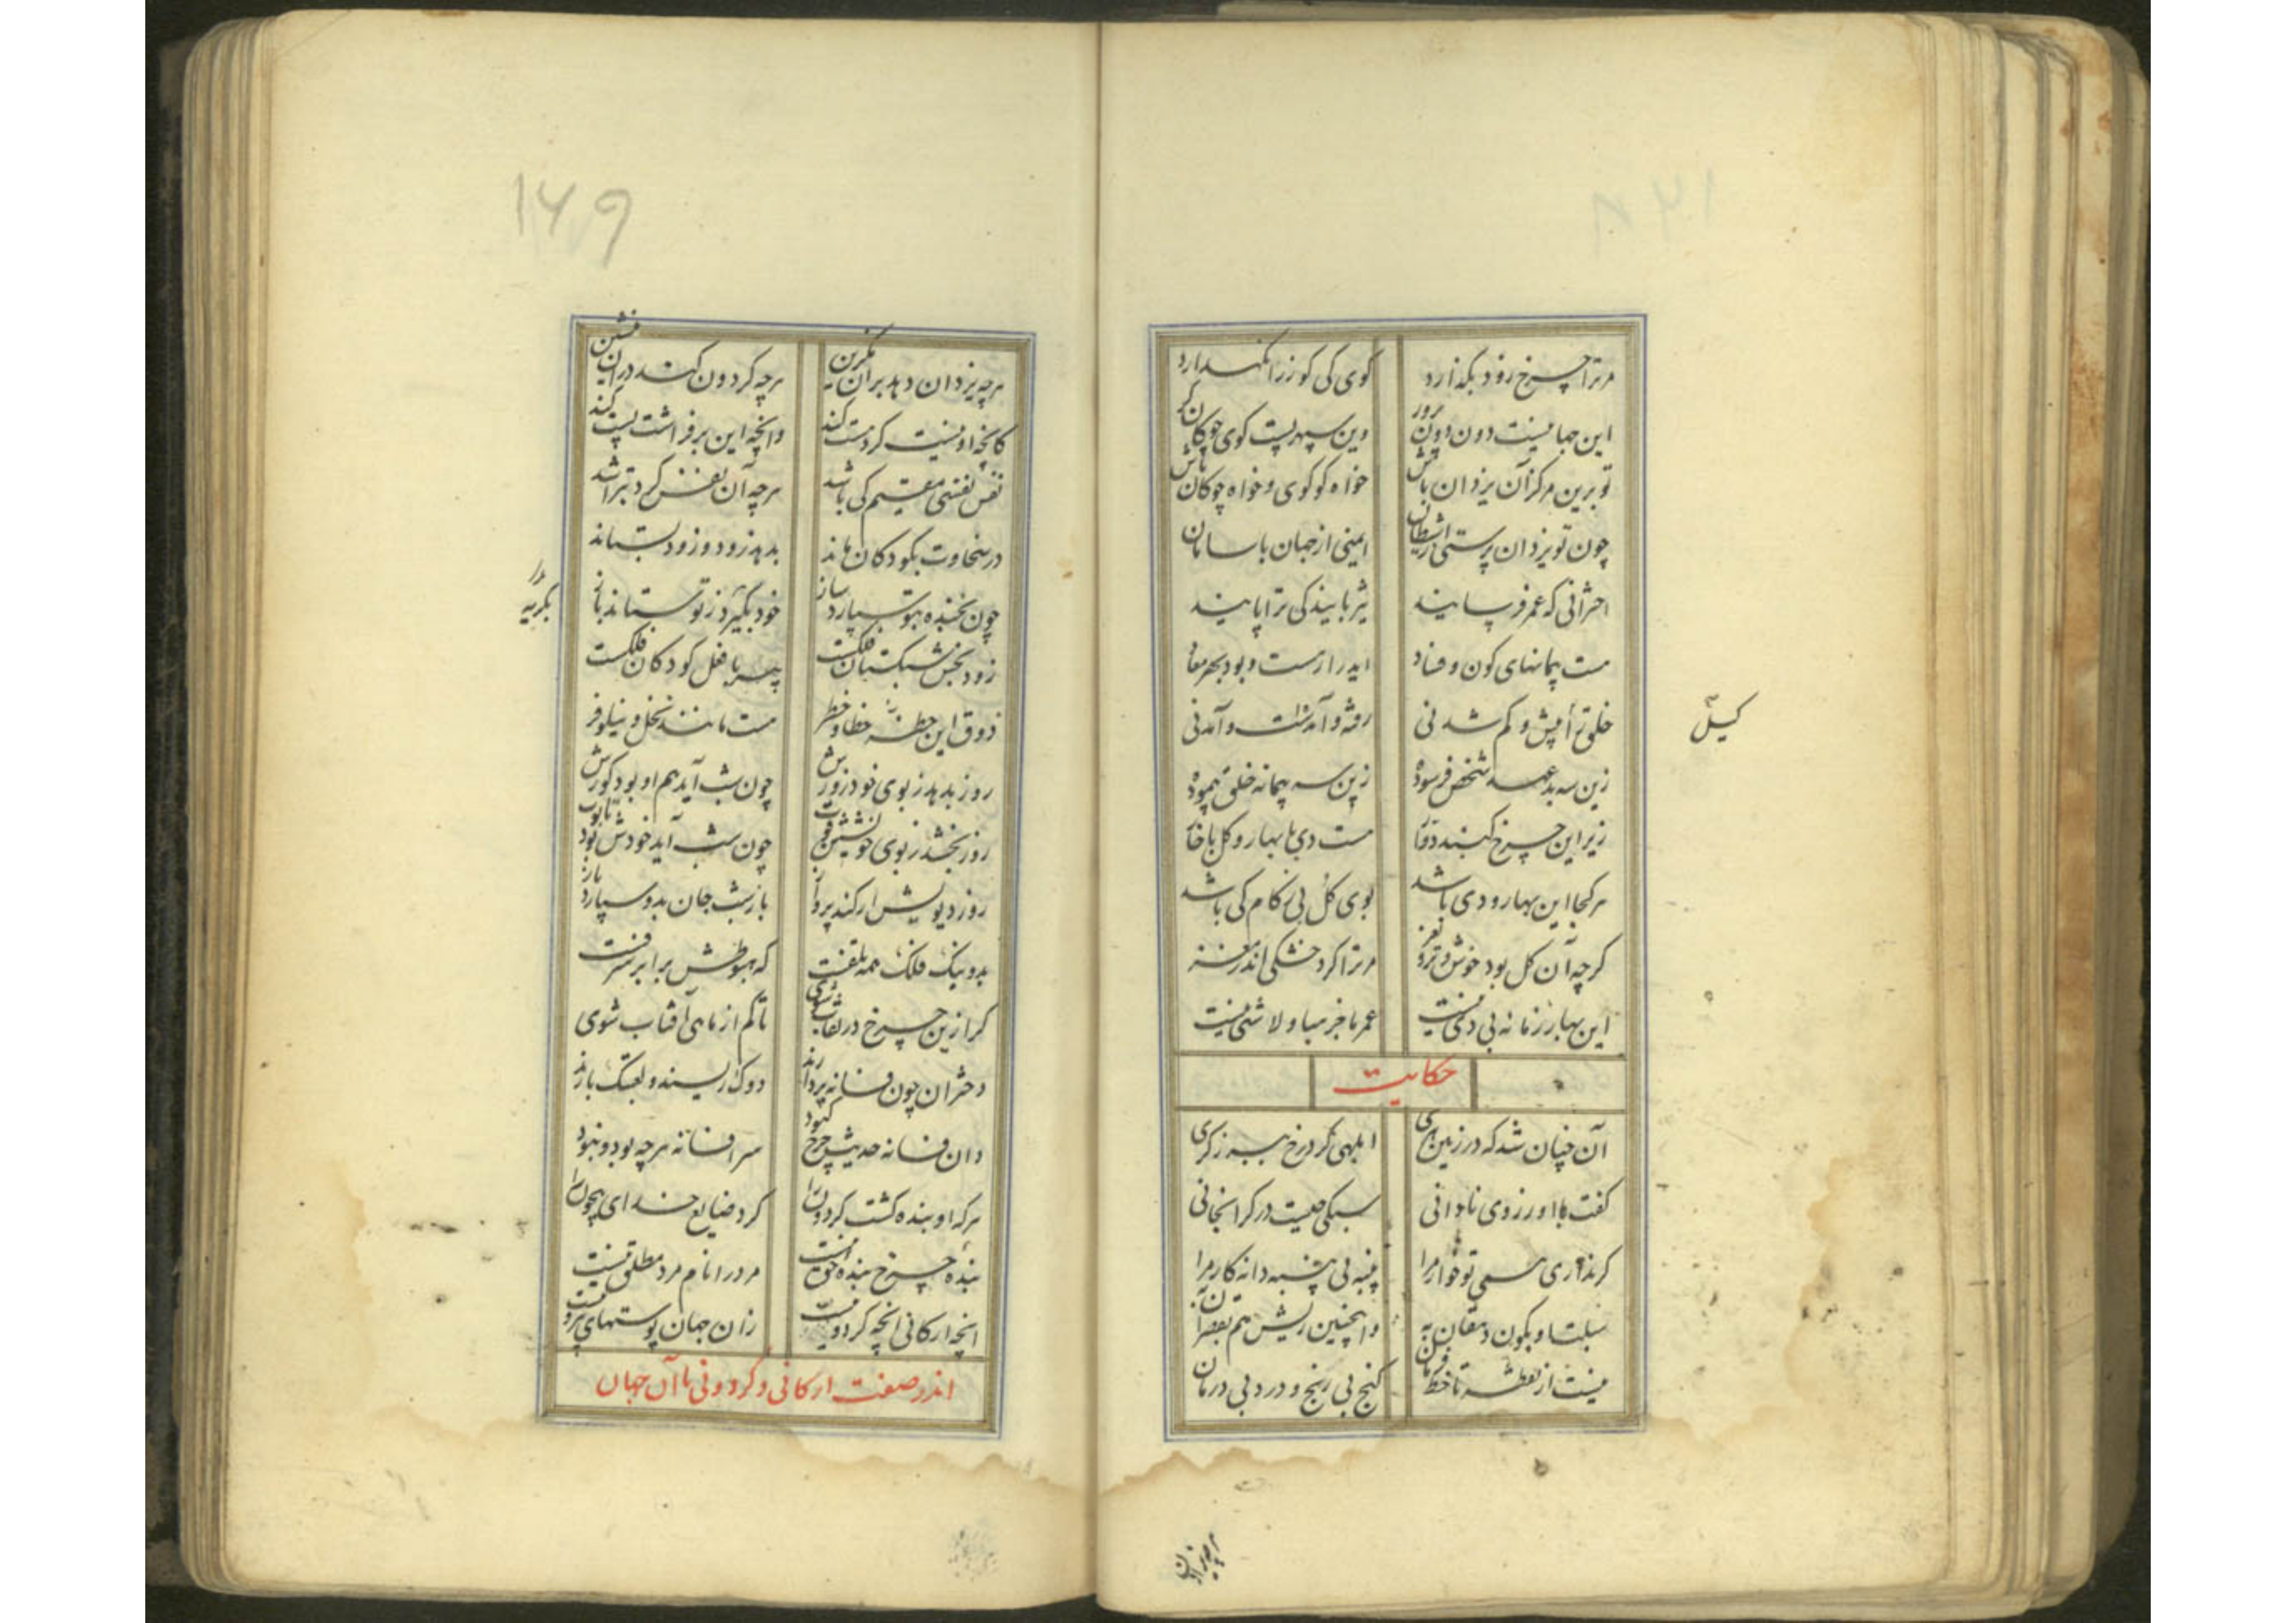 مر ترا چرخ زود بگذارد
گوی کی گوژ را نگهدارد
این جهانیست دون و دون پرور
وین سپهریست گوی چوکان گر
تو برین مرکز آن یزدان باش
خواه کو گوی و خواه چوکان باش
چون تو یزدان پرستی از شیطان
ایمنی از جهان با سامان
اخترانی که عمر فرسایند
هست پیمانهای کون و فساد
خلق را بیش و کم شدنی
رفته و آمدست و آمدنی
زین سه بد عمر شخص فرسوده
زین سه پیمانه خلق پیموده
زیر این چرخ گنبد دوتا
هست دی با بهار و گل با خار
هر کجا این بهار و دی باشد
بوی گل بی زکام کی باشد
گرچه آن گل بود خوش و تر و نغز
مر ترا کرد خشکی اندر مغز
این بهار زمانه بی دی نیست
عمر ما جز هبا و لا شی نیست
حکایت
آن چنان شد که در زمین هری
ابلهی کرد رخ به برزگری
گفت با او ز روی نادانی
سبکی چیست در گرانجانی
گر نداری همی تو خوار مرا
پنبه بی پنبه دانه کار مرا
سبلت او بکون دهقان به
نیست از نقطه تا خط فرمان
گنج بی رنج و درد بی درمان
کیل
هر چه یزدان
۱۶۹
هر چه یزدان دهد بر آن مگزین
هر چه گردون کند در آن منشین
کانچه او نیست کرد هست کند
وانچه این بر فراشت پست کند
نفس نفسی مقیم کی باشد
هر چه آن نقش کرد بتراشد
در سخاوت بکودکان ماند
بدهد زود و زود بستاند
چون بخنده بتو سپارد ساز
خود بگیرد ز تو ستاند باز
بگریه
زود بخش سبک ستان فلکست
پیر با فعل کودکان فلکست
ذوق این خطه خطا و خطر
هست مانند نخل و نیلوفر
روز بدهد ز بوی خود زورش
چون شب آید هم او بود گورش
روز بخشد ز بوی خویشش قوت
چون شب آید خودش بود تابوت
روز دیویش ار کند پرواز
باز شب جان بدو سپارد باز
بد و نیک فلک همه تلفست
که هبوطش برابر شرفست
گر ازین چرخ در نقاب شوی
تا کم از ماهی آفتاب شوی
دختران چون فسانه پردازند
دوک ریسند و لعبتک بازند
دان فسانه حدیث چرخ کبود
سر افسانه هر چه بود و نبود
هر که او بنده گشت گردون را
کرد ضایع خدای بیچون را
بنده چرخ بنده حق نیست
مرد را نام مرد مطلق نیست
آنچه ارکانی آنچه گردونیست
زان جهان پوستهای بیرونیست
اندر صفت ارکانی و گردونی با آن جهان